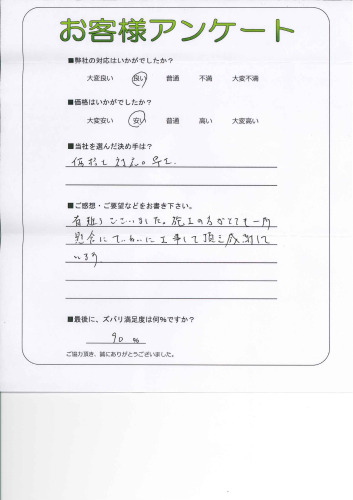 お客様アンケート
■弊社の対応はいかがでしたか？
大変良い 良い 普通 不満 大変不満
■価格はいかがでしたか？
大変安い 安い 普通 高い 大変高い
■当社を選んだ決め手は？
価格と対応の早さ
■ご感想・ご要望などをお書き下さい。
有難うございました。施工の方がとても一所
懸命にていねいに工事して頂き感謝して
います
■最後に、ズバリ満足度は何%ですか？
90 %
ご協力頂き、誠にありがとうございました。